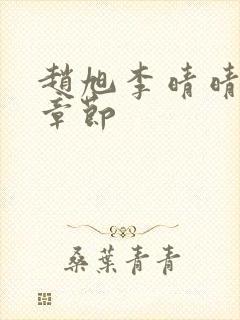 趙旭李晴晴
章節
桑葉青青